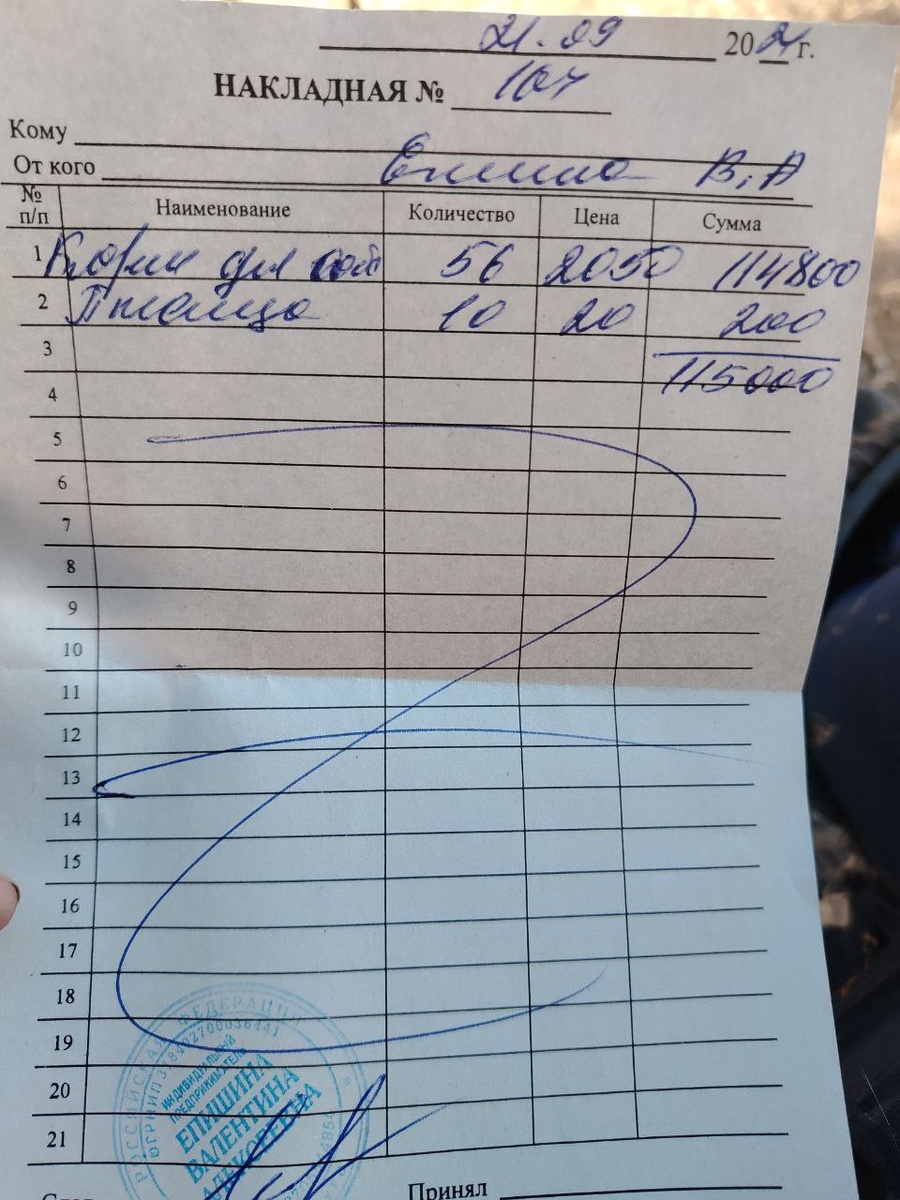 21.09 2021 г.
НАКЛАДНАЯ № 107
Кому
От кого Епишина В.А
№ п/п Наименование Количество Цена Сумма
1 Корм для соб 56 2050 114800
2 10 20 200
3
115000
4
5
6
7
8
9
10
11
12
13
14
15
16
17
18
19
20
21
РОССИЙСКАЯ ФЕДЕРАЦИЯ
ИНДИВИДУАЛЬНЫЙ
ПРЕДПРИНИМАТЕЛЬ
ЕПИШИНА
ВАЛЕНТИНА
АЛЕКСЕЕВНА
Принял